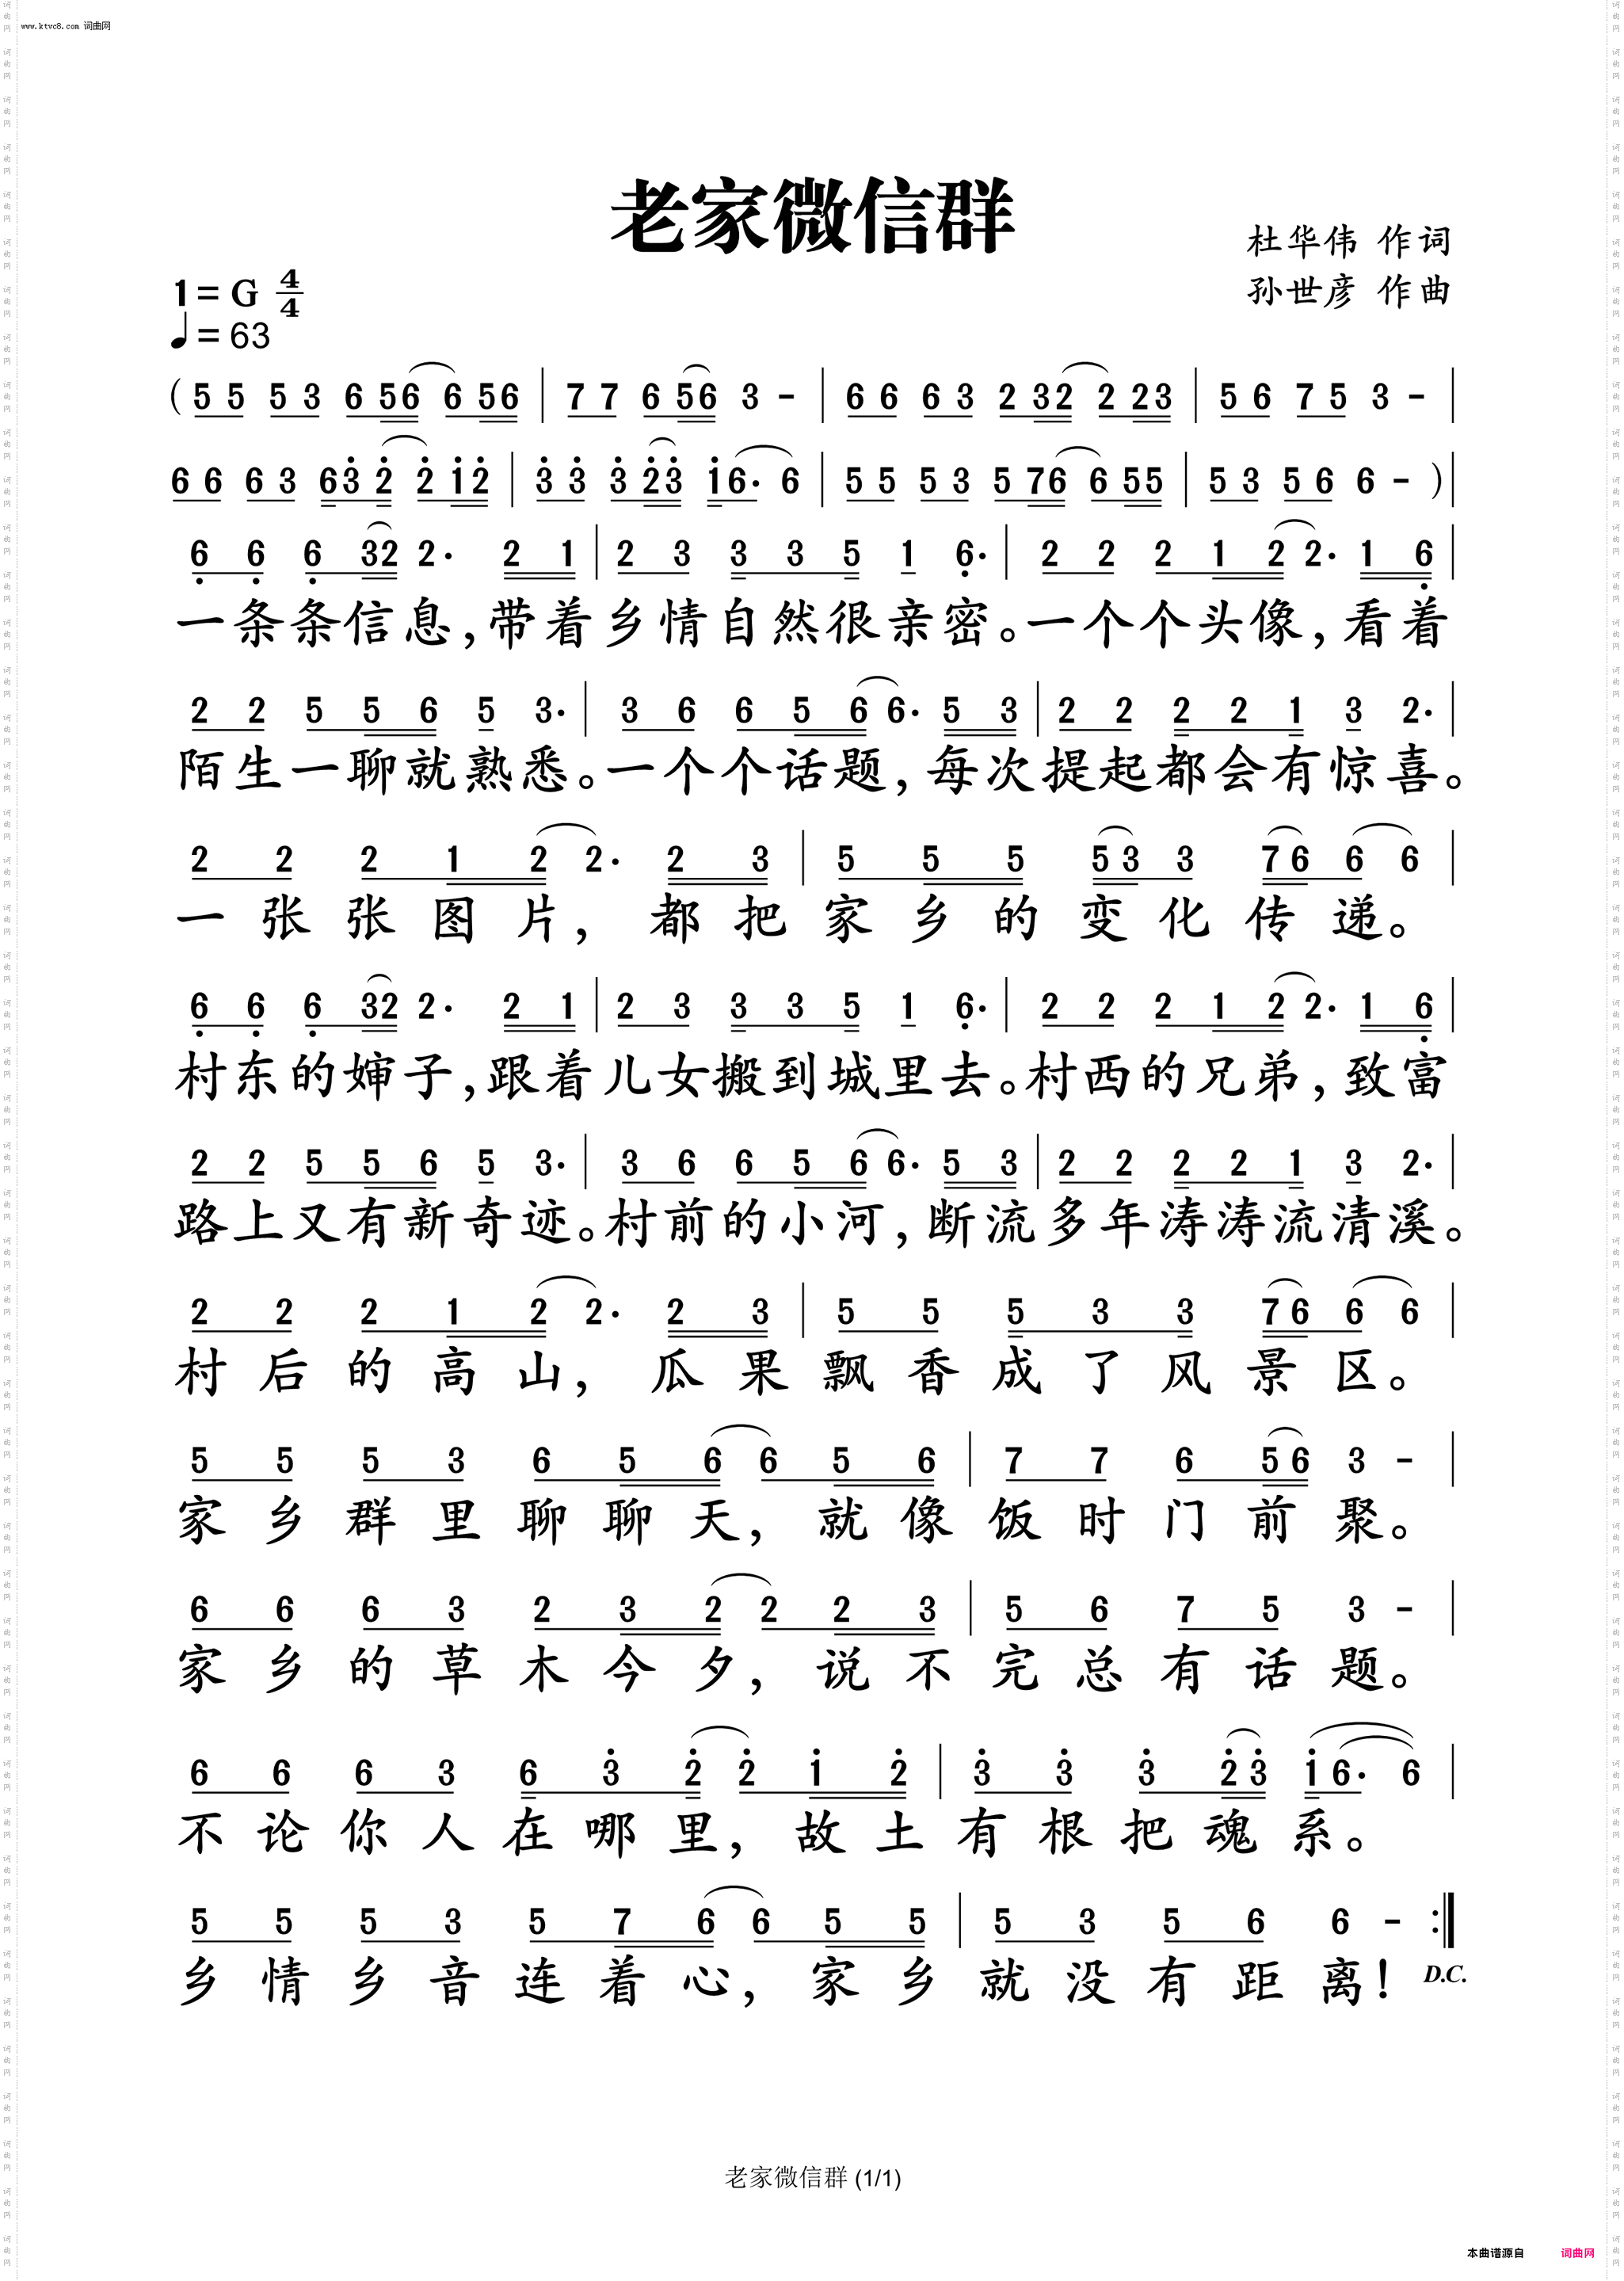 www.ktvc8.com 词曲网
老家微信群
杜华伟 作词
1= G 4/4
孙世彦 作曲
♩= 63
( 5 5 5 3 6 56 6 56 | 7 7 6 56 3 - | 6 6 6 3 2 32 2 23 | 5 6 7 5 3 - |
6 6 6 3 63̇ 2̇ 2̇ 1̇2̇ | 3̇ 3̇ 3̇ 2̇3̇ 1̇6· 6 | 5 5 5 3 5 76 6 55 | 5 3 5 6 6 - ) |
6̣ 6̣ 6̣ 32 2· 2 1 | 2 3 3 3 5 1 6̣· | 2 2 2 1 2 2· 1 6̣ |
一条条信息,带着乡情自然很亲密。一个个头像,看着
2 2 5 5 6 5 3· | 3 6 6 5 6 6· 5 3 | 2 2 2 2 1 3 2· |
陌生一聊就熟悉。一个个话题,每次提起都会有惊喜。
2 2 2 1 2 2· 2 3 | 5 5 5 5 3 3 7 6 6 6 |
一张张图片,都把家乡的变化传递。
6̣ 6̣ 6̣ 32 2· 2 1 | 2 3 3 3 5 1 6̣· | 2 2 2 1 2 2· 1 6̣ |
村东的婶子,跟着儿女搬到城里去。村西的兄弟,致富
2 2 5 5 6 5 3· | 3 6 6 5 6 6· 5 3 | 2 2 2 2 1 3 2· |
路上又有新奇迹。村前的小河,断流多年涛涛流清溪。
2 2 2 1 2 2· 2 3 | 5 5 5 3 3 7 6 6 6 |
村后的高山,瓜果飘香成了风景区。
5 5 5 3 6 5 6 6 5 6 | 7 7 6 5 6 3 - |
家乡群里聊聊天,就像饭时门前聚。
6 6 6 3 2 3 2 2 2 3 | 5 6 7 5 3 - |
家乡的草木今夕,说不完总有话题。
6 6 6 3 6 3̇ 2̇ 2̇ 1̇ 2̇ | 3̇ 3̇ 3̇ 2̇ 3̇ 1̇ 6· 6 |
不论你人在哪里,故土有根把魂系。
5 5 5 3 5 7 6 6 5 5 | 5 3 5 6 6 - :‖
乡情乡音连着心,家乡就没有距离! D.C.
老家微信群 (1/1)
本曲谱源自 词曲网